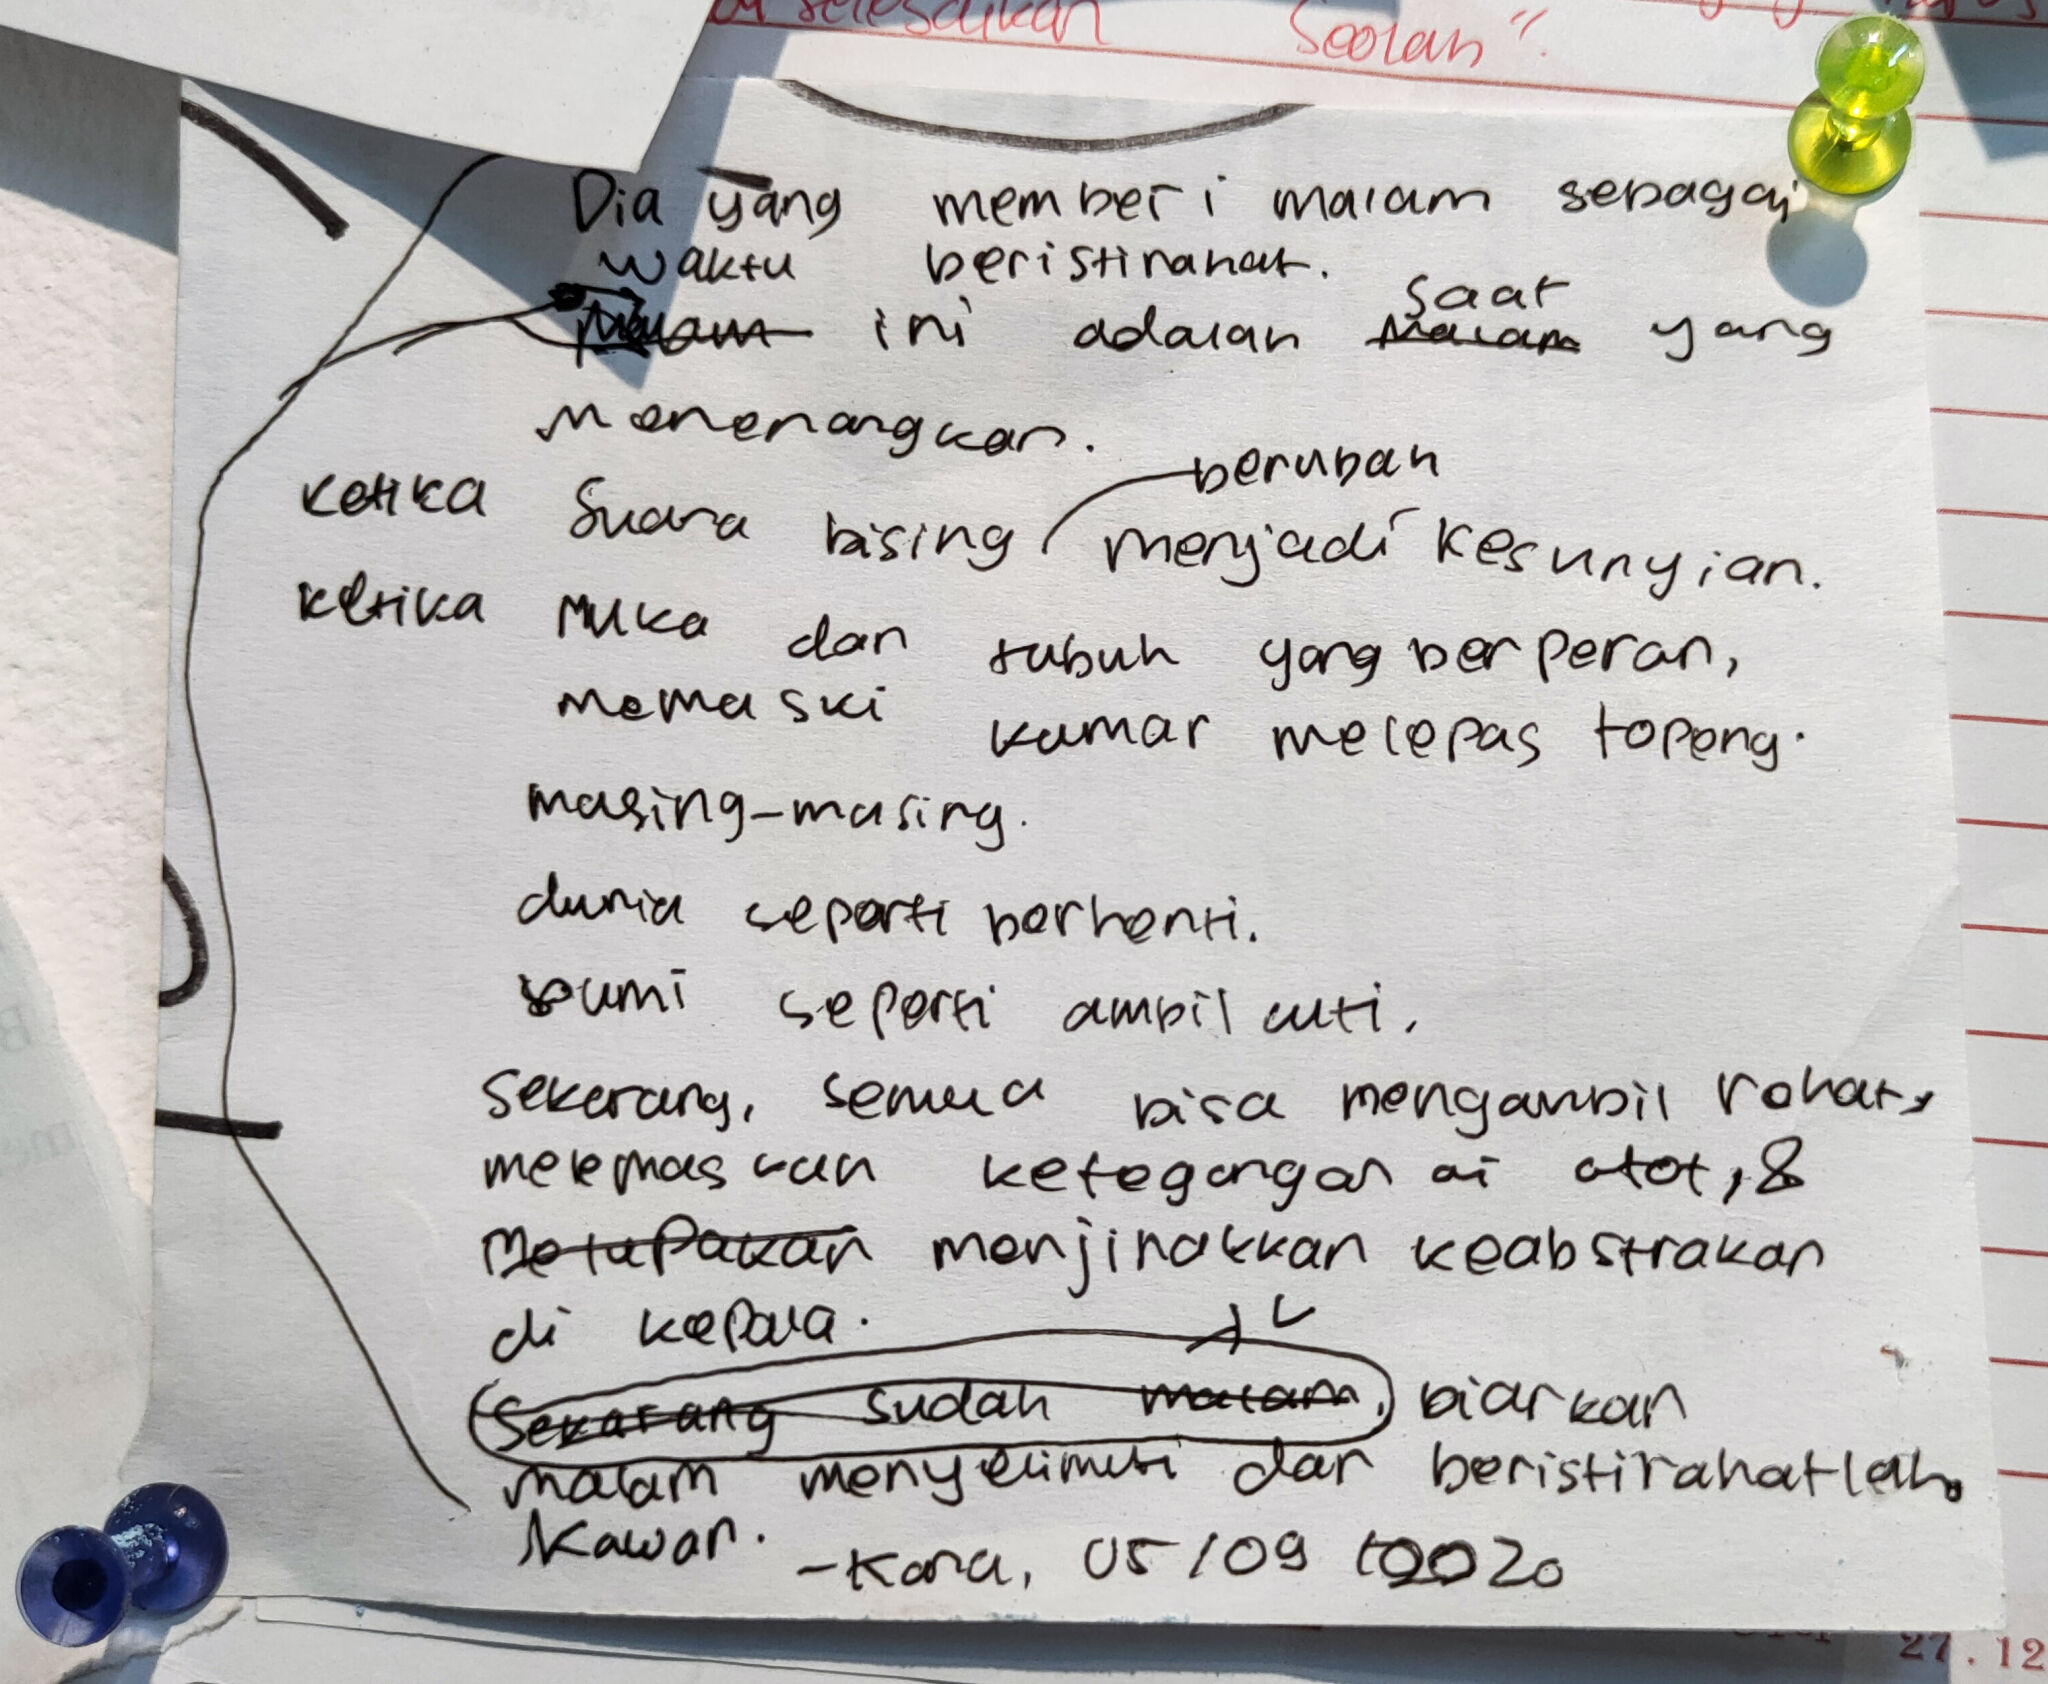 selesaikan Seolah".
Dia yang memberi malam sebagai
waktu beristirahat.
Malam ini adalah saat yang
Malam
menenangkan.
berubah
ketika Suara bising menjadi kesunyian.
ketika muka dan tubuh yang berperan,
memaski kamar melepas topeng.
masing-masing.
dunia seperti berhenti.
bumi seperti ambil cuti.
Sekarang, semua bisa mengambil rehat,
melemaskan ketegangan di otot, &
Melupakan menjinakkan keabstrakan
di kepala.
Sekarang sudah malam, biarkan
malam menyelimuti dan beristirahatlah.
Kawan.
-Kara, 05/09 2020
27.12